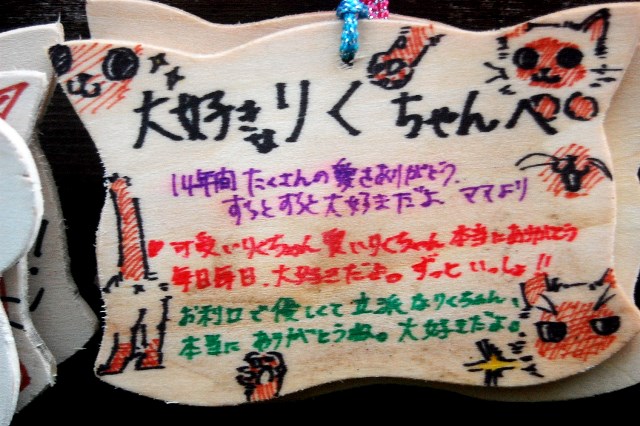 大好きなりくちゃんへ
14年間たくさんの愛をありがとう。
ずっとずっと大好きだよ ママより
♥可愛いりくちゃん愛いりくちゃん本当にありがとう
毎日毎日、大好きだよ。ずっといっしょ!!
お利口で優しくて立派なりくちゃん、
本当にありがとうね。大好きだよ。